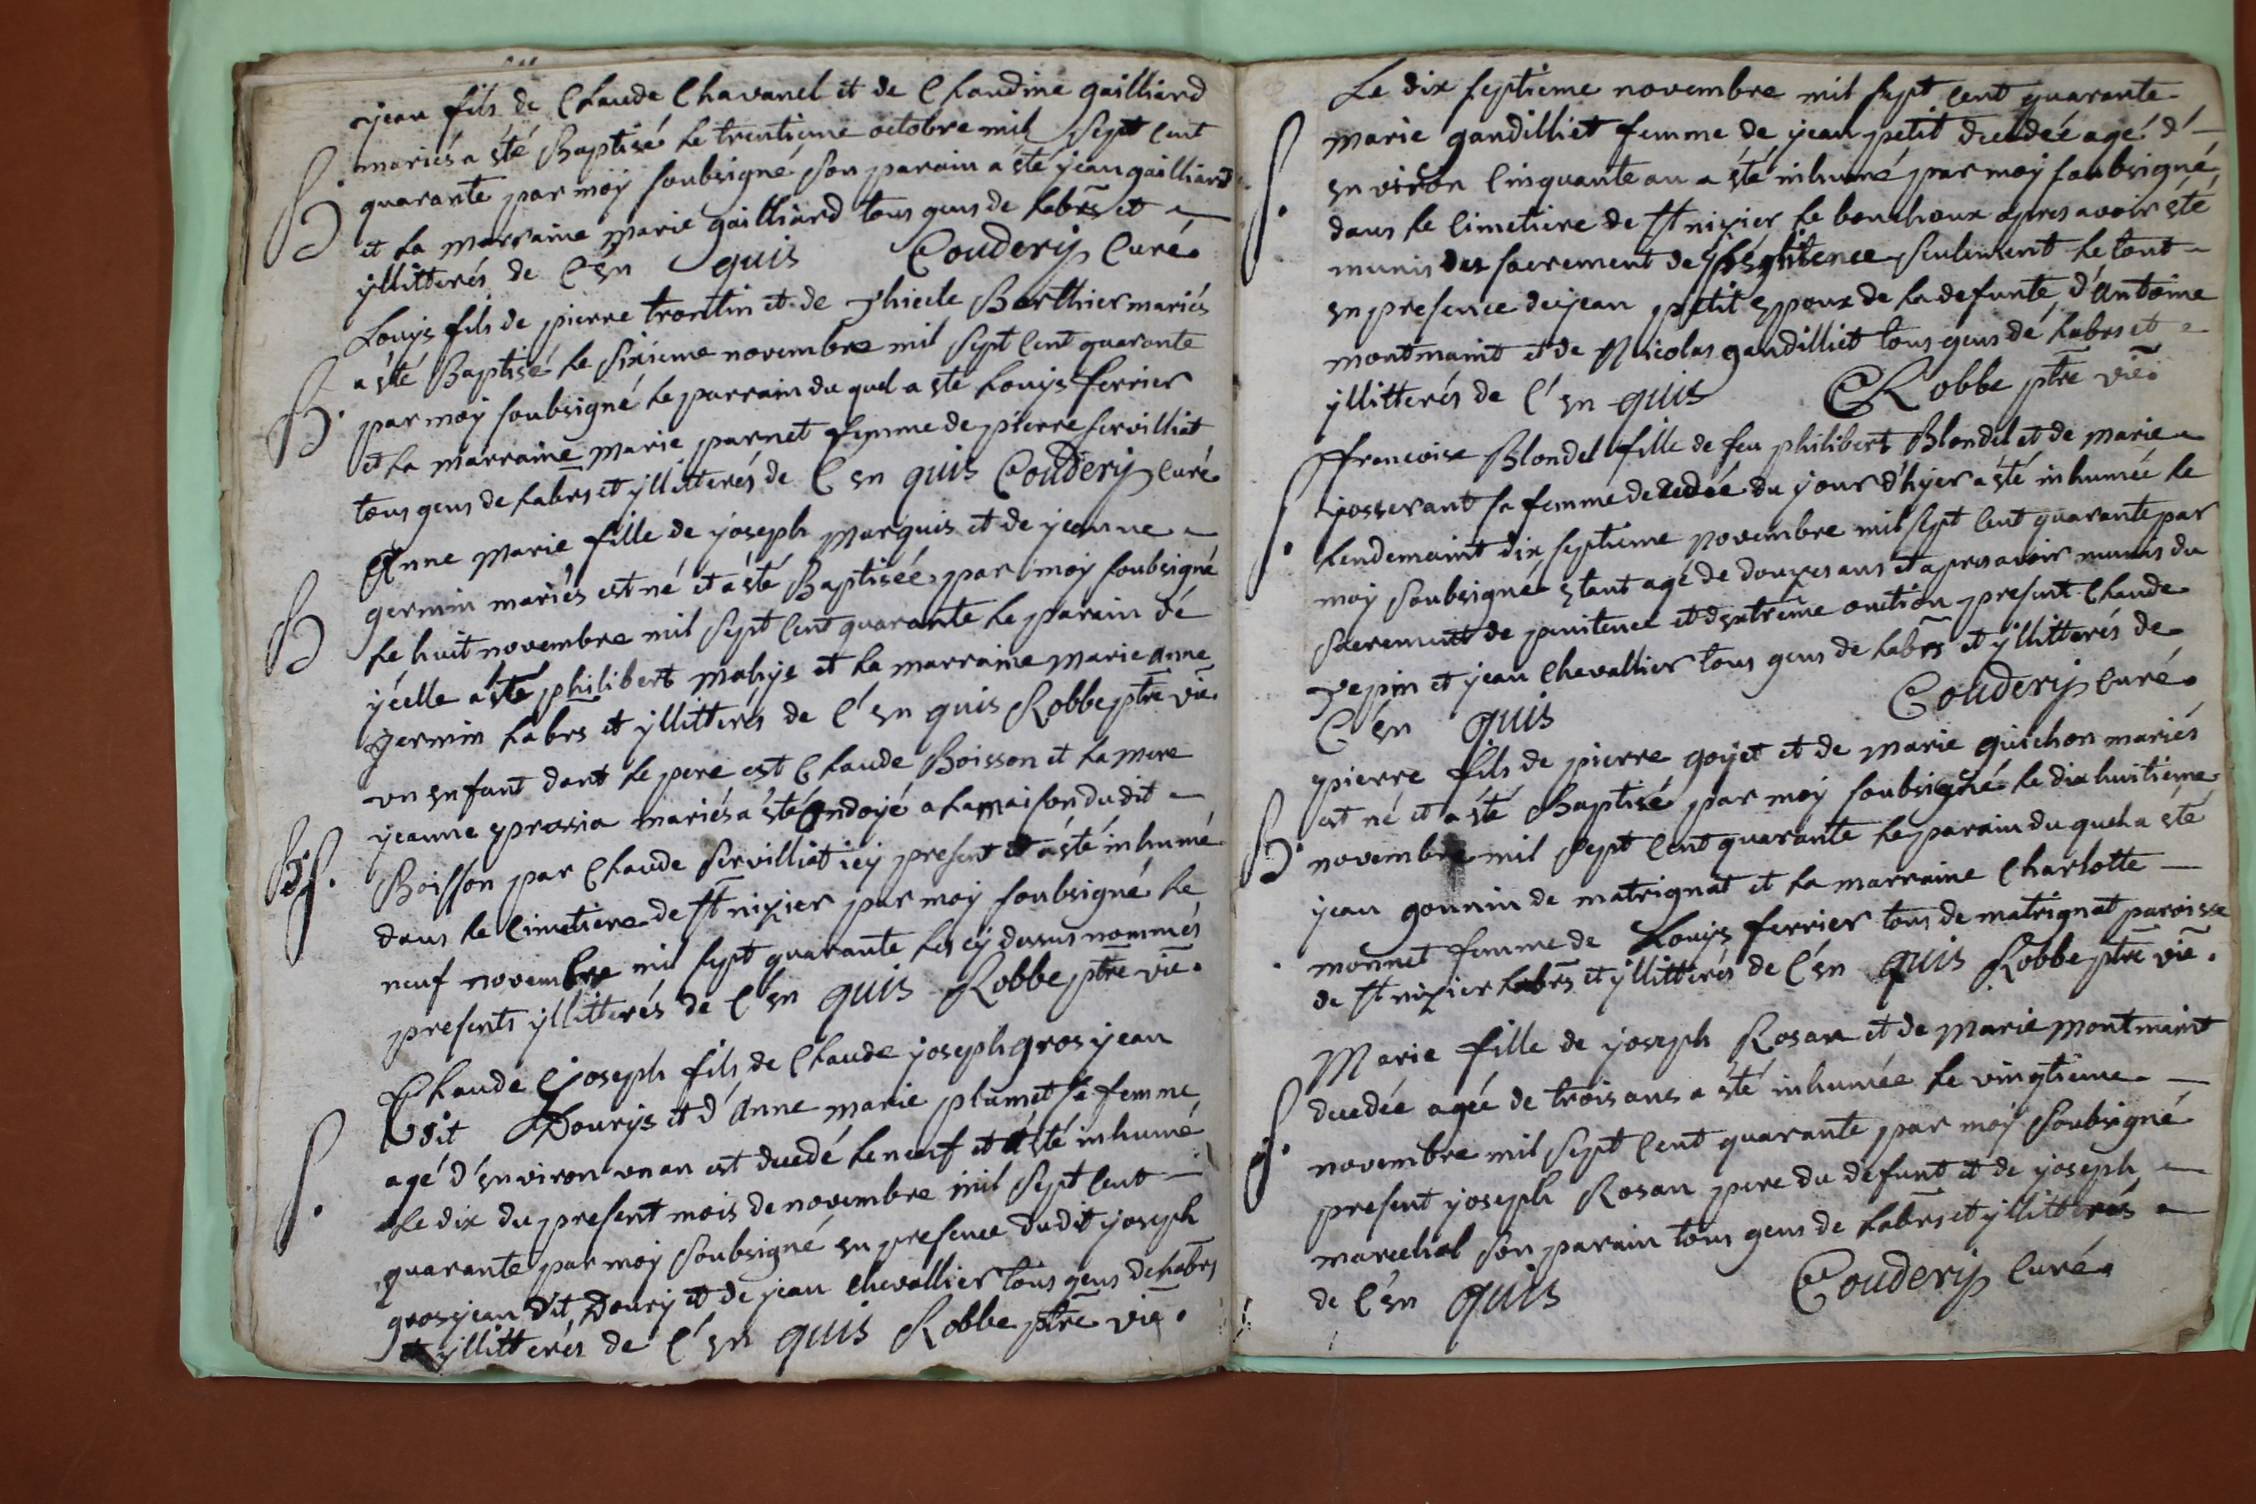 jean fils de Claude Chavanel et de Claudine gailliard
mariés a été Baptisé le trentieme octobre mil sept cent
B. quarante par moy soubsigné, son parain a été jean gailliard
et la marraine marie gailliard tous gens de labrs et
yllitterés de C'en quis Couderij Curé.
Louys fils de pierre trontin et de Berthier mariés
a été Baptisé le sixieme novembre mil sept cent quarante
B. par moy soubsigné le parrain du quel a été Louys ferrier
et la marraine marie parnet femme de pierre servilliat
tous gens de labrs et yllitterés de C en quis Couderij curé
Anne marie fille de joseph marquis et de jeanne
germin mariés est né et a été Baptisée par moy soubsigné
B le huit novembre mil sept cent quarante le parain de
jcelle a été philibert mahye et la marraine marie anne
germin labrs et yllitterés de C'en quis Robbe ptre vic.
un enfant dont le pere est Claude Boisson et la mere
jeanne sprasia mariés a été ondoyé a la maison dudit
B. S. Boisson par Claude servilliat icy present et a été inhumé
dans le Cimetiere de st nizier par moy soubsigné le
neuf novembre mil sept quarante les cy dessus nommés
presents yllitterés de C'en quis Robbe ptre vic.
Claude joseph fils de Claude joseph grosjean
dit Dourys et d'anne marie plumet sa femme
agé d'environ un an est decedé le neuf et a été inhumé
S. le dix du present mois de novembre mil sept cent
quarante par moy soubsigné en presence dudit joseph
grosjean dit Doury et de jean chevallier tous gens de labrs
et yllitterés de C'en quis Robbe ptre vic.
Le dix septieme novembre mil sept cent quarante
marie gandilliet femme de jean petit decedée agé d'
S. environ Cinquante an a été inhumé par moy soubsigné
dans le Cimetiere de st nizier le bouchoux apres avoir été
munis des sacrement de pénitence seulement le tout
en presence de jean petit epoux de la defunte d'antoine
montmaint et de Nicolas gandilliet tous gens de labrs et
yllitterés de C'en quis CRobbe ptre vic.
francoise Blondel fille de feu philibert Blondel et de marie
josserant sa femme decedée du jour d'hyer a été inhumée le
S. lendemaint dix septieme novembre mil sept cent quarante par
moy soubsigné etant agé de douzes ans et apres avoir munis du
sacrement de penitence et d'extreme onction present Claude
vepin et jean chevallier tous gens de labrs et yllitterés de
C'en quis Couderij curé.
pierre fils de pierre goyet et de marie guichon mariés
est né et a été Baptisé par moy soubsigné le dix huitieme
B. novembre mil sept cent quarante le parain du quel a été
jean gonnin de matrignat et la marraine Charlotte
monnet femme de Louys ferrier tous de matrignat paroisse
de st nizier labrs et yllitterés de C'en quis Robbe ptre vic.
Marie fille de joseph Rosan et de marie montmaint
decedée agée de trois ans a été inhumée le vingtieme
S. novembre mil sept cent quarante par moy soubsigné
present joseph Rosan pere du defunt et de joseph
marechal son parain tous gens de labrs et yllitterés
de C'en quis Couderij Curé.